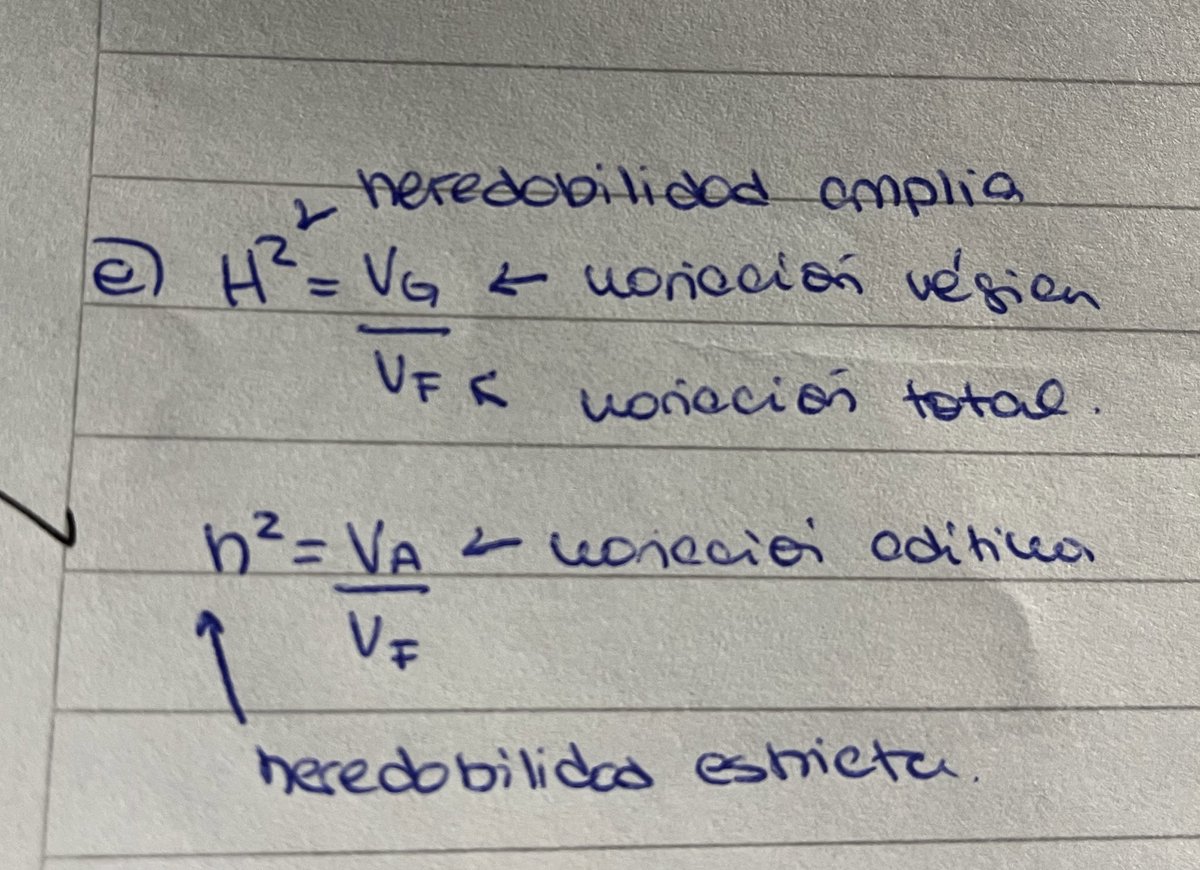 heredabilidad amplia
e) H² = VG ← variación
VF ← variación total.
h² = VA ← variación aditiva
VF
heredabilidad estricta.